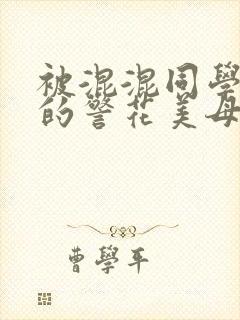 被混混同學
的警花美母
曹學平